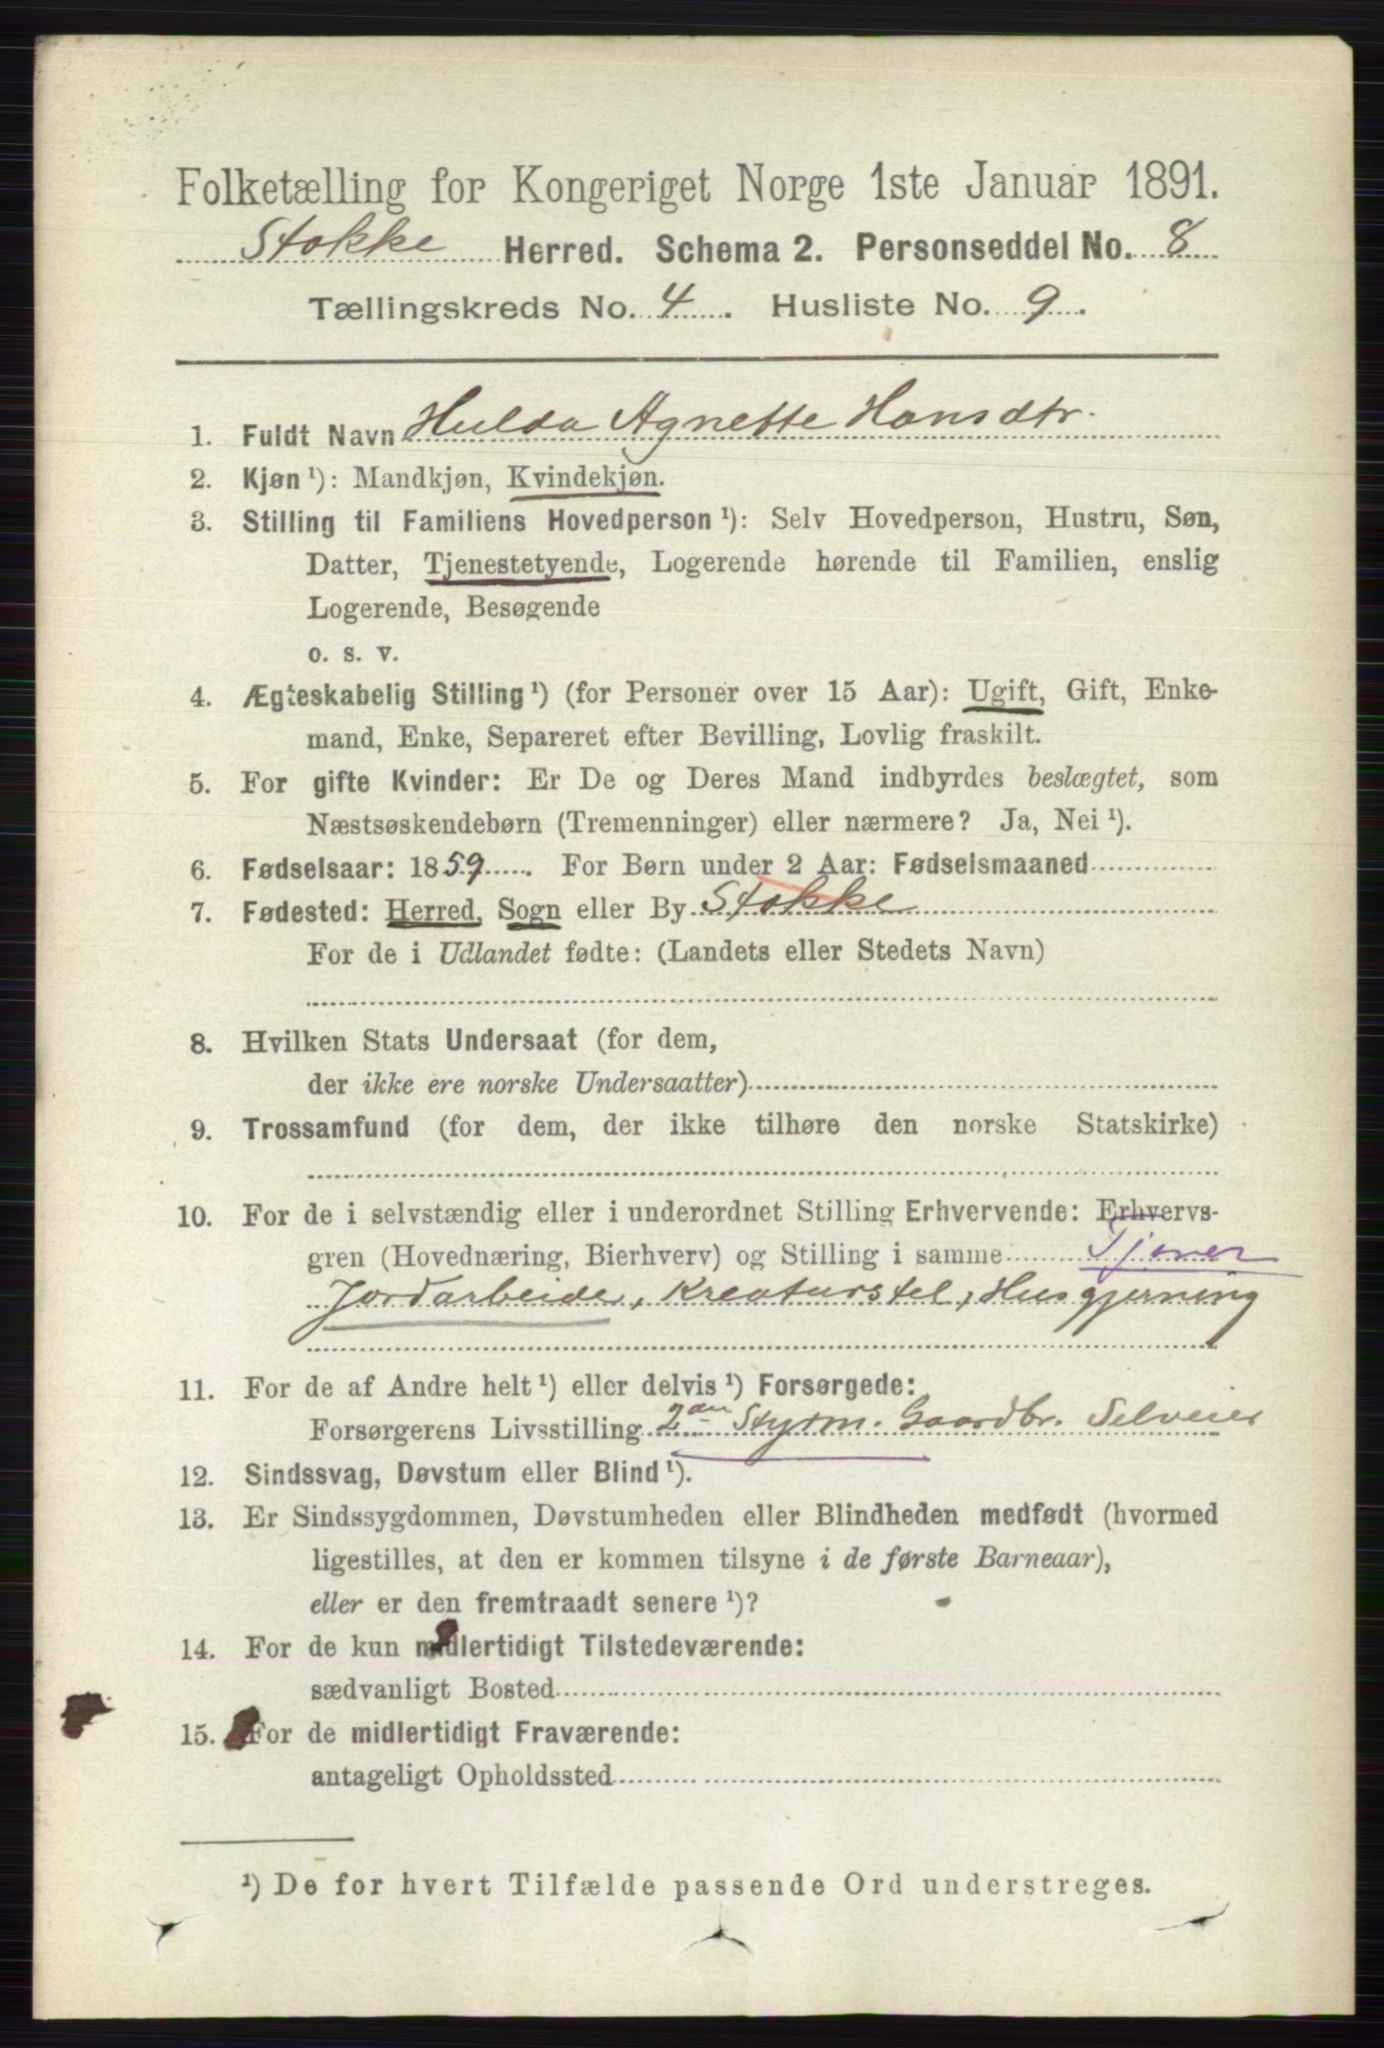 Folketælling for Kongeriget Norge 1ste Januar 1891.
Stokke Herred. Schema 2. Personseddel No. 8
Tællingskreds No. 4. Husliste No. 9.
1. Fuldt Navn Hulda Agnette Hansdtr.
2. Kjøn ¹): Mandkjøn, Kvindekjøn.
3. Stilling til Familiens Hovedperson ¹): Selv Hovedperson, Hustru, Søn,
Datter, Tjenestetyende, Logerende hørende til Familien, enslig
Logerende, Besøgende
o. s. v.
4. Ægteskabelig Stilling ¹) (for Personer over 15 Aar): Ugift, Gift, Enke-
mand, Enke, Separeret efter Bevilling, Lovlig fraskilt.
5. For gifte Kvinder: Er De og Deres Mand indbyrdes beslægtet, som
Næstsøskendebørn (Tremenninger) eller nærmere? Ja, Nei ¹).
6. Fødselsaar: 1859. For Børn under 2 Aar: Fødselsmaaned
7. Fødested: Herred, Sogn eller By Stokke
For de i Udlandet fødte: (Landets eller Stedets Navn)
8. Hvilken Stats Undersaat (for dem,
der ikke ere norske Undersaatter)
9. Trossamfund (for dem, der ikke tilhøre den norske Statskirke)
10. For de i selvstændig eller i underordnet Stilling Erhvervende: Erhvervs-
gren (Hovednæring, Bierhverv) og Stilling i samme Tjener
Jordarbeide, Kreaturstel, Husgjerning
11. For de af Andre helt ¹) eller delvis ¹) Forsørgede:
Forsørgerens Livsstilling 2den Styrm. Gaardbr. Selveier
12. Sindssvag, Døvstum eller Blind ¹).
13. Er Sindssygdommen, Døvstumheden eller Blindheden medfødt (hvormed
ligestilles, at den er kommen tilsyne i de første Barneaar),
eller er den fremtraadt senere ¹)?
14. For de kun midlertidigt Tilstedeværende:
sædvanligt Bosted
15. For de midlertidigt Fraværende:
antageligt Opholdssted
¹) De for hvert Tilfælde passende Ord understreges.